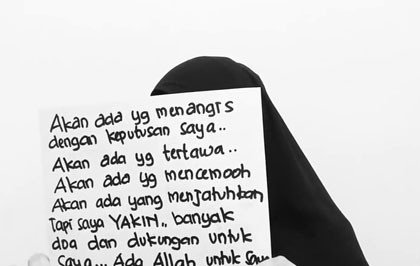 Akan ada yg menangis
dengan keputusan saya..
Akan ada yg tertawa..
Akan ada yg mencemooh
Akan ada yang menjatuhkan
Tapi saya YAKIN.. banyak
doa dan dukungan untuk
saya... Ada Allah untuk saya